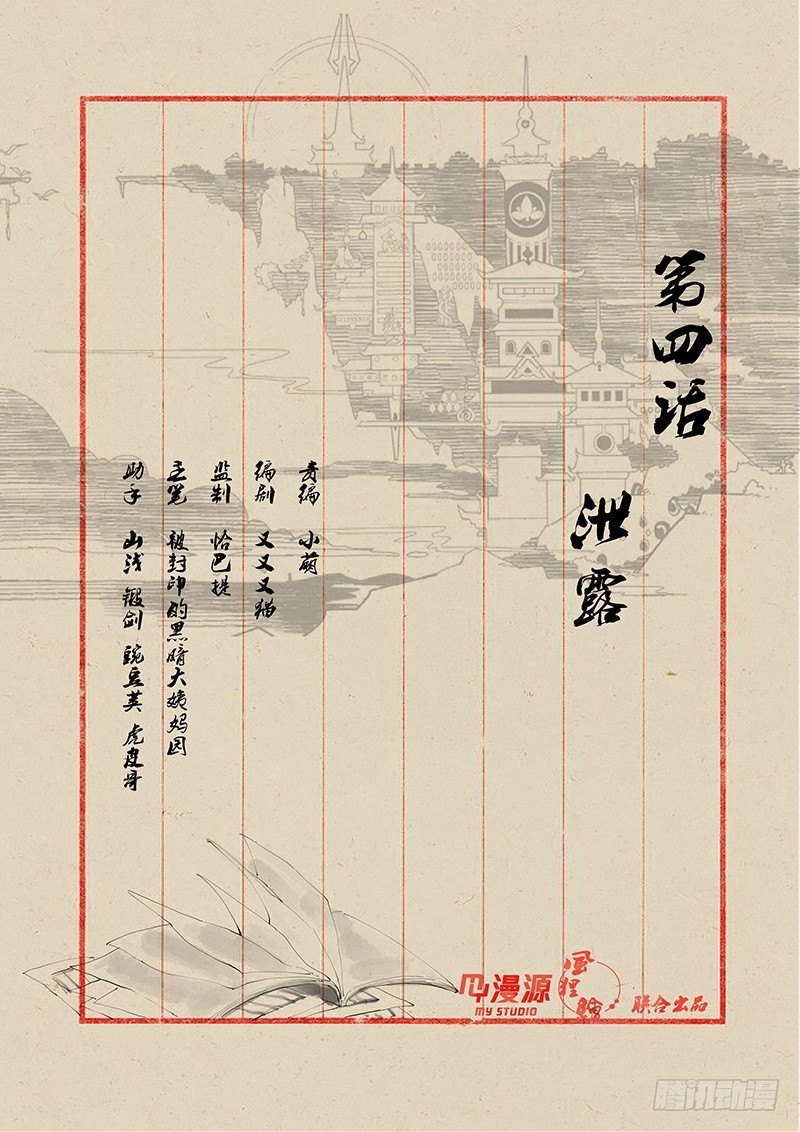 第四话
泄露
责编 小萌
编剧 又又又猫
监制 恰巴提
主笔 被封印的黑暗大姨妈园
助手 山浅 锻剑 豌豆荚 虎皮哥
漫源
MY STUDIO
風狸
联合出品
腾讯动漫